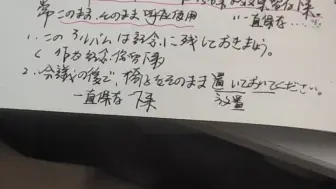 常 このまま、そのまま 呼应使用 "一直保存……"
1. このアルバムは記念に残しておきましょう。
作为纪念 保留下来
2. 会議の後で、椅子をそのまま置いておいてください。
一直保存 下来 放置